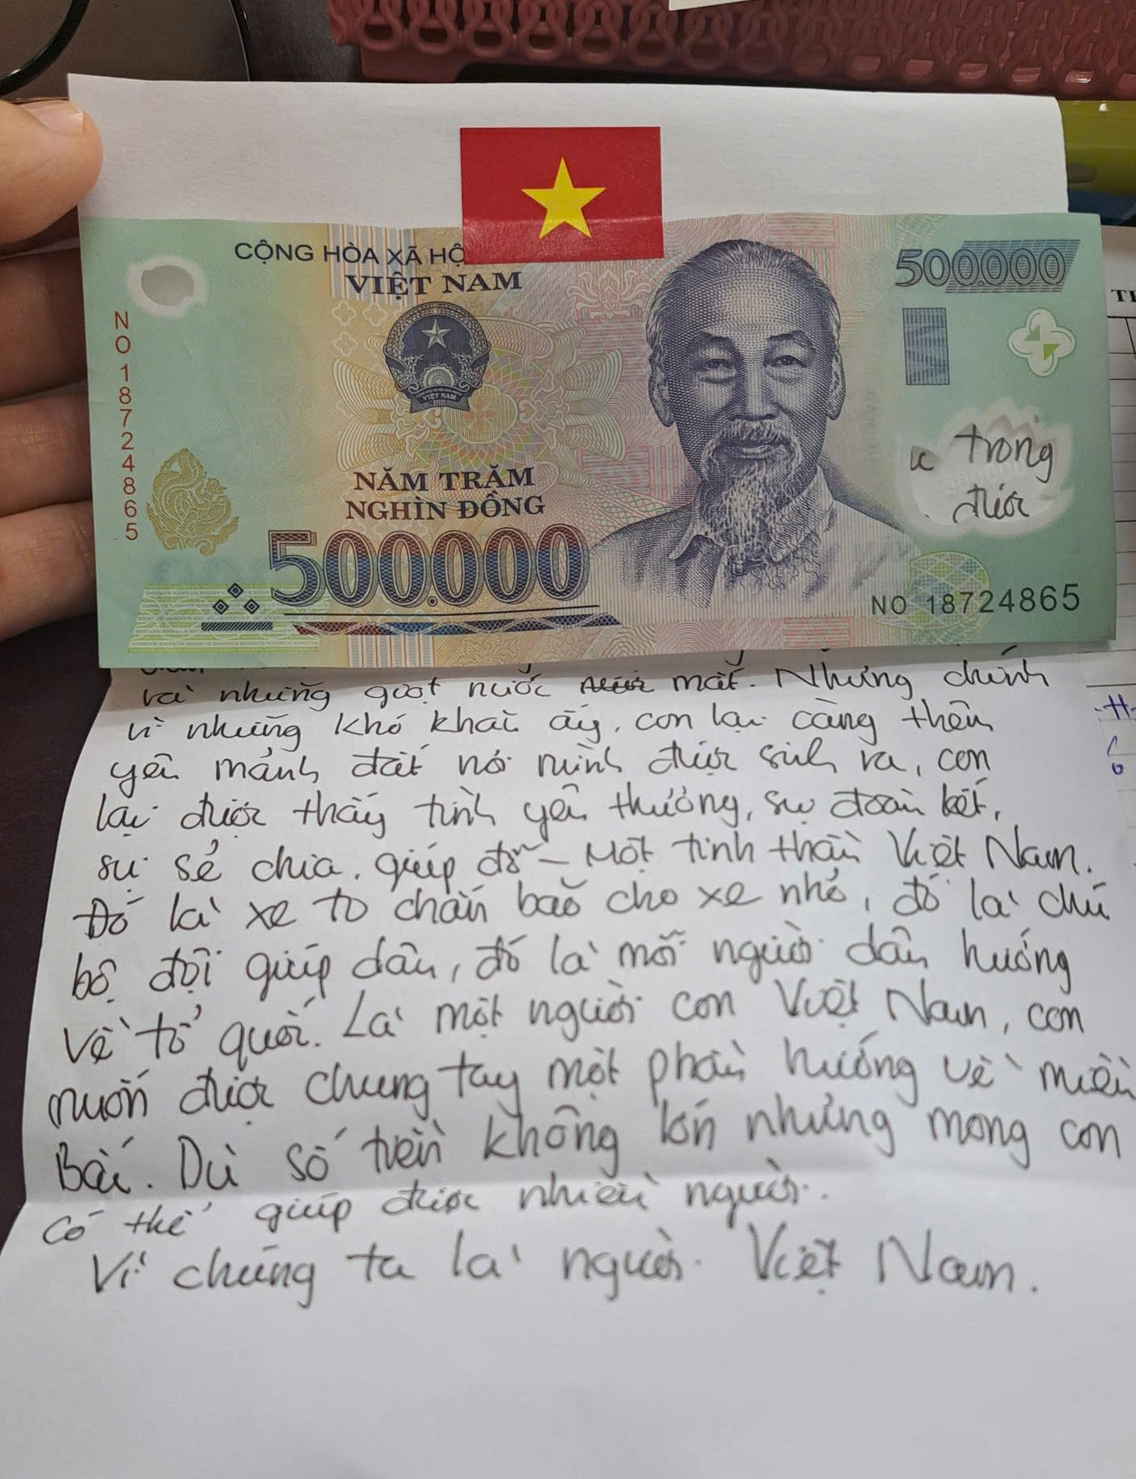 CỘNG HÒA XÃ HỘ
VIỆT NAM
500.000
NO 18724865
VIỆT NAM
NĂM TRĂM
NGHÌN ĐỒNG
500.000
trong
được
NO 18724865
và những giọt nước mắt. Nhưng chính
vì những khó khăn ấy, con lại càng thêm
yêu mảnh đất nơi mình được sinh ra, con
lại được thấy tình yêu thương, sự đoàn kết,
sự sẻ chia, giúp đỡ – Một tinh thần Việt Nam.
Đó là xe to chắn bão cho xe nhỏ, đó là chú
bộ đội giúp dân, đó là mỗi người dân hướng
về tổ quốc. Là một người con Việt Nam, con
muốn được chung tay một phần hướng về miền
Bắc. Dù số tiền không lớn nhưng mong con
có thể giúp được nhiều người.
Vì chúng ta là người Việt Nam.